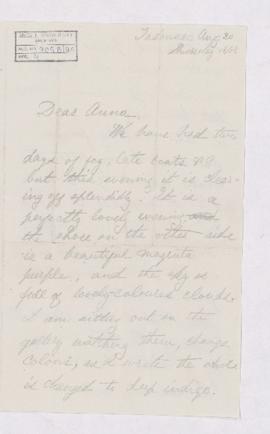 Tadousac Aug 20
Dear Anna
We have had two
days of fog, late boats &c.
but this evening it is clear-
ing off splendidly. It is a
perfectly lovely evening and
the shore on the other side
is a beautiful magenta
purple, and the sky is
full of lovely coloured clouds.
I am sitting out on the
gallery watching them change
colour, as I write the shore
is changed to deep indigo.